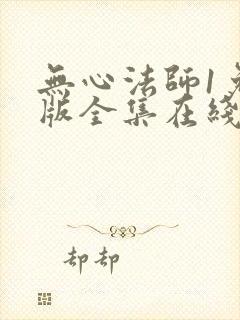 無心法師1免
版全集在綫
却却